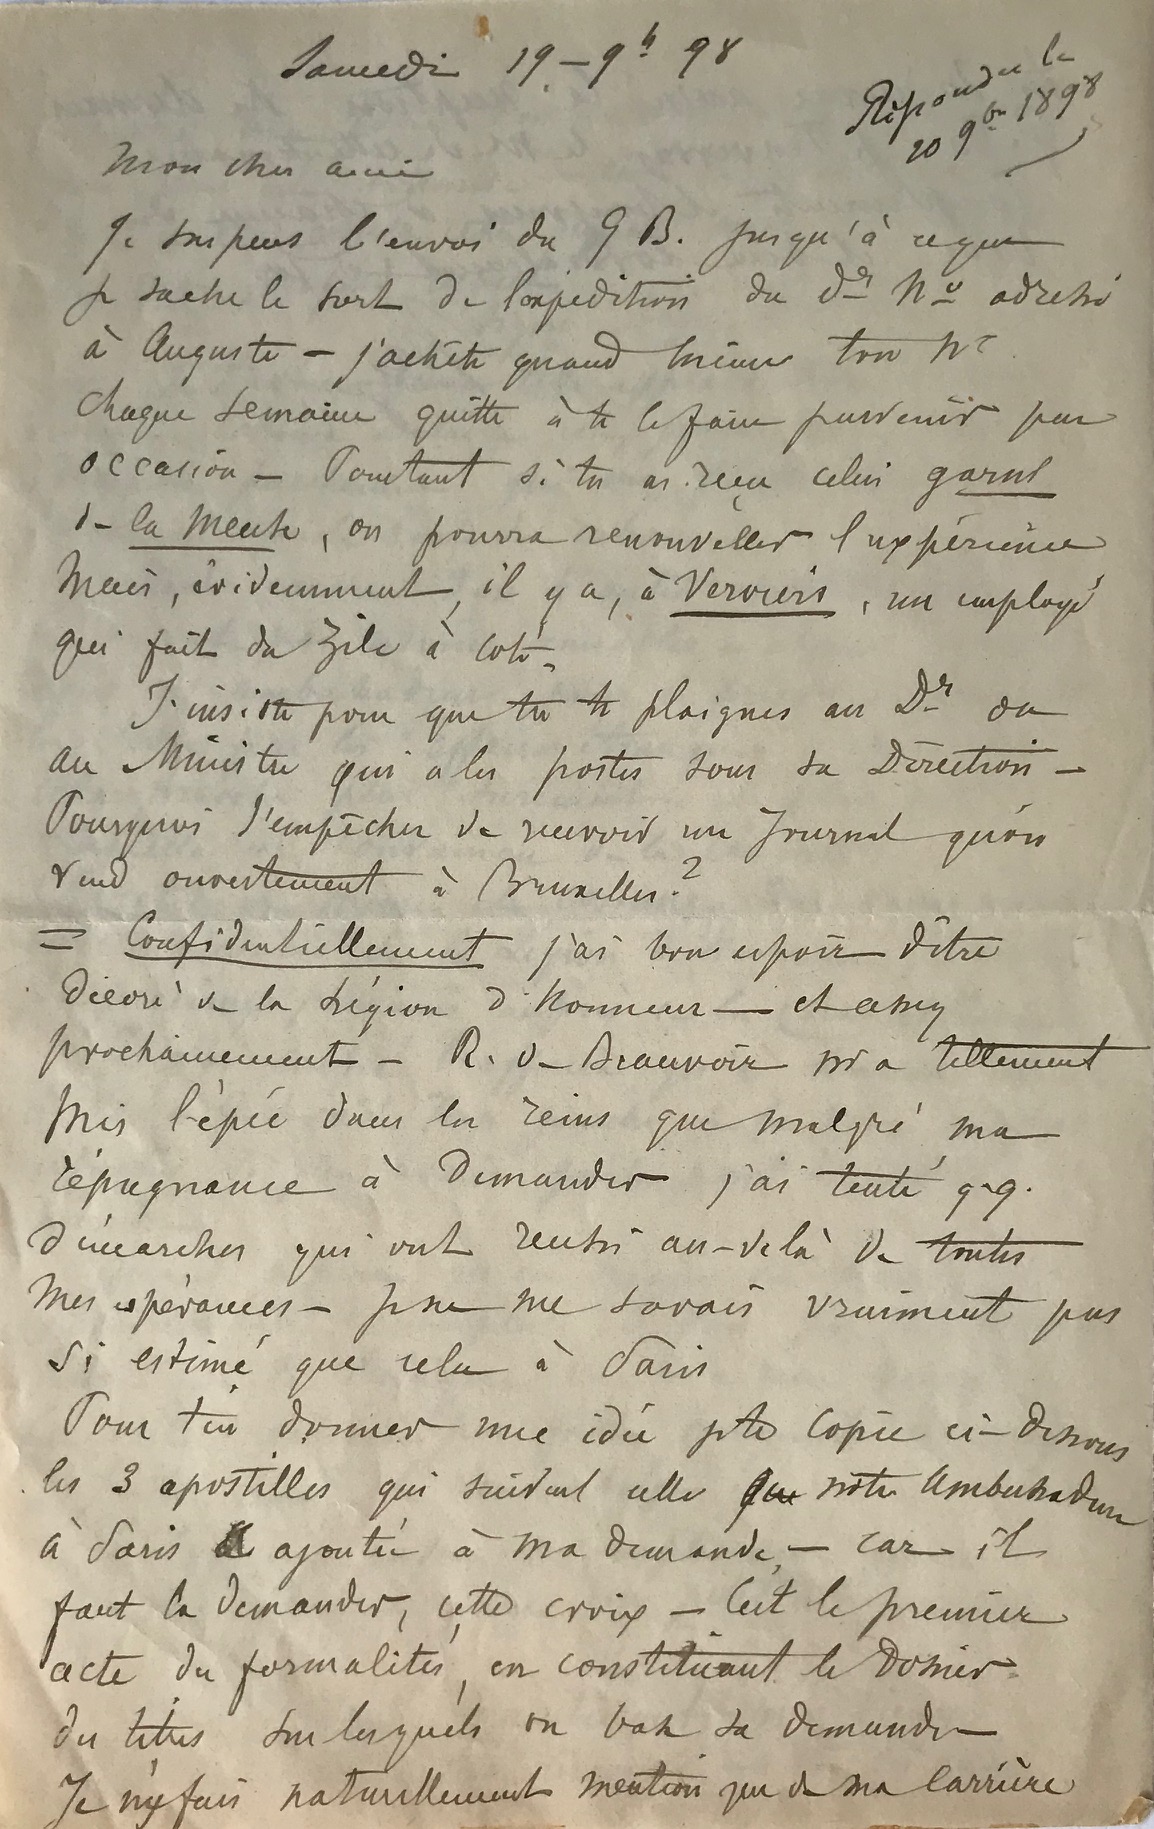 Samedi 19 – 9b 98
Répondu le
20 9bre 1898
Mon cher ami
Je suspens l'envoi du G B. jusqu'à ce que
je sache le sort de l'expédition du dr No adressé
à Auguste – j'achète quand même ton No
chaque semaine quitte à te le faire parvenir par
occasion – Pourtant si tu as reçu celui garni
de la Meute, on pourra renouveller l'expérience
Mais, évidemment, il y a, à Verviers, un employé
qui fait du zèle à coté.
J'insiste pour que tu te plaignes au Dr ou
au Ministre qui a les postes sous sa Direction –
Pourquoi t'empêcher de recevoir un Journal qu'on
vend ouvertement à Bruxelles ?
= Confidentiellement j'ai bon espoir d'être
décoré de la Légion d'Honneur — et assez
prochainement – R. de Beauvoir m'a tellement
mis l'épée dans les reins que malgré ma
répugnance à demander j'ai tenté q.q.
démarches qui ont reussi au-delà de toutes
mes espérances – je ne me savais vraiment pas
si estimé que cela à Paris
Pour t'en donner une idée je te copie ci-dessous
les 3 apostilles qui suivent celle que notre Ambassadeur
à Paris a ajoutée à ma demande, – car il
faut la demander, cette croix – C'est le premier
acte des formalités, en constituant le Dossier
des titres sur lesquels on base sa demande
Je n'y fais naturellement mention que de ma carrière